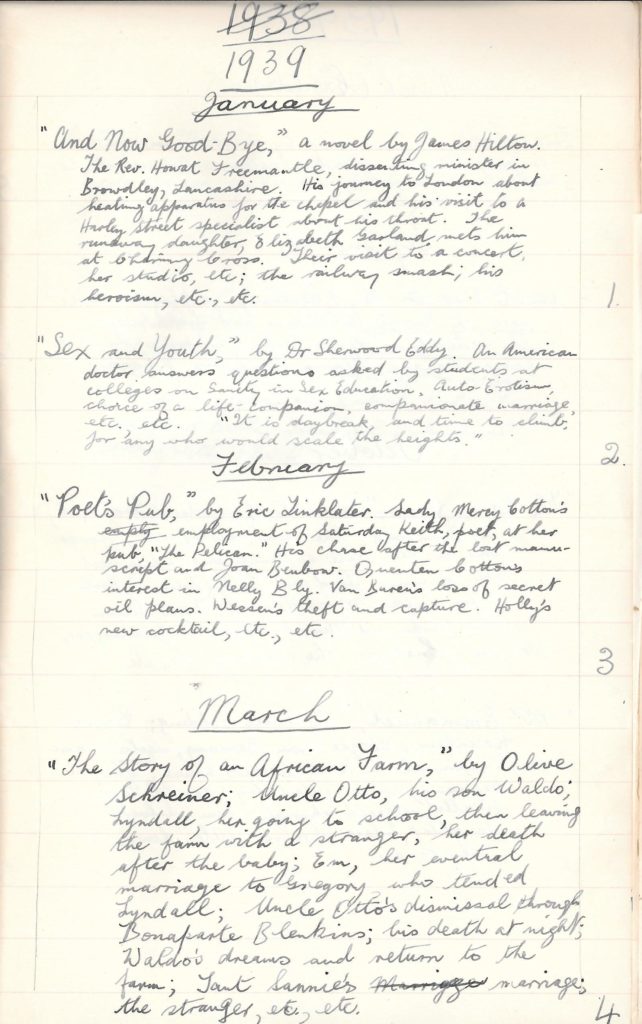 1938
1939
January
"And Now Good-Bye," a novel by James Hilton.
The Rev. Howat Freemantle, dissenting minister in
Browdley, Lancashire. His journey to London about
heating apparatus for the chapel and his visit to a
Harley Street specialist about his throat. The
runaway daughter, Elizabeth Garland, mets him
at Charing Cross. Their visit to a concert,
her studio, etc; the railway smash; his
heroism, etc., etc.
1.
"Sex and Youth," by Dr Sherwood Eddy. An American
doctor answers questions asked by students at
colleges on Sanity in Sex Education, Auto-Erotism,
choice of a life-companion, companionate marriage,
etc., etc. "It is daybreak, and time to climb,
for any who would scale the heights."
2.
February
"Poet's Pub," by Eric Linklater. Lady Mercy Cotton's
empty employment of Saturday Keith, poet, at her
pub, "The Pelican." His chase after the lost manu-
script and Joan Benbow. Quenten Cotton's
interest in Nelly Bly. Van Buren's loss of secret
oil plans. Wesson's theft and capture. Holly's
new cocktail, etc., etc.
3
March
"The Story of an African Farm," by Olive
Schreiner; Uncle Otto, his son Waldo;
Lyndall, her going to school, then leaving
the farm with a stranger, her death
after the baby; Em, her eventral
marriage to Gregory who tended
Lyndall; Uncle Otto's dismissal through
Bonaparte Blenkins; his death at night;
Waldo's dreams and return to the
farm; Tant Sannie's Marrigge marriage;
the stranger, etc., etc.
4